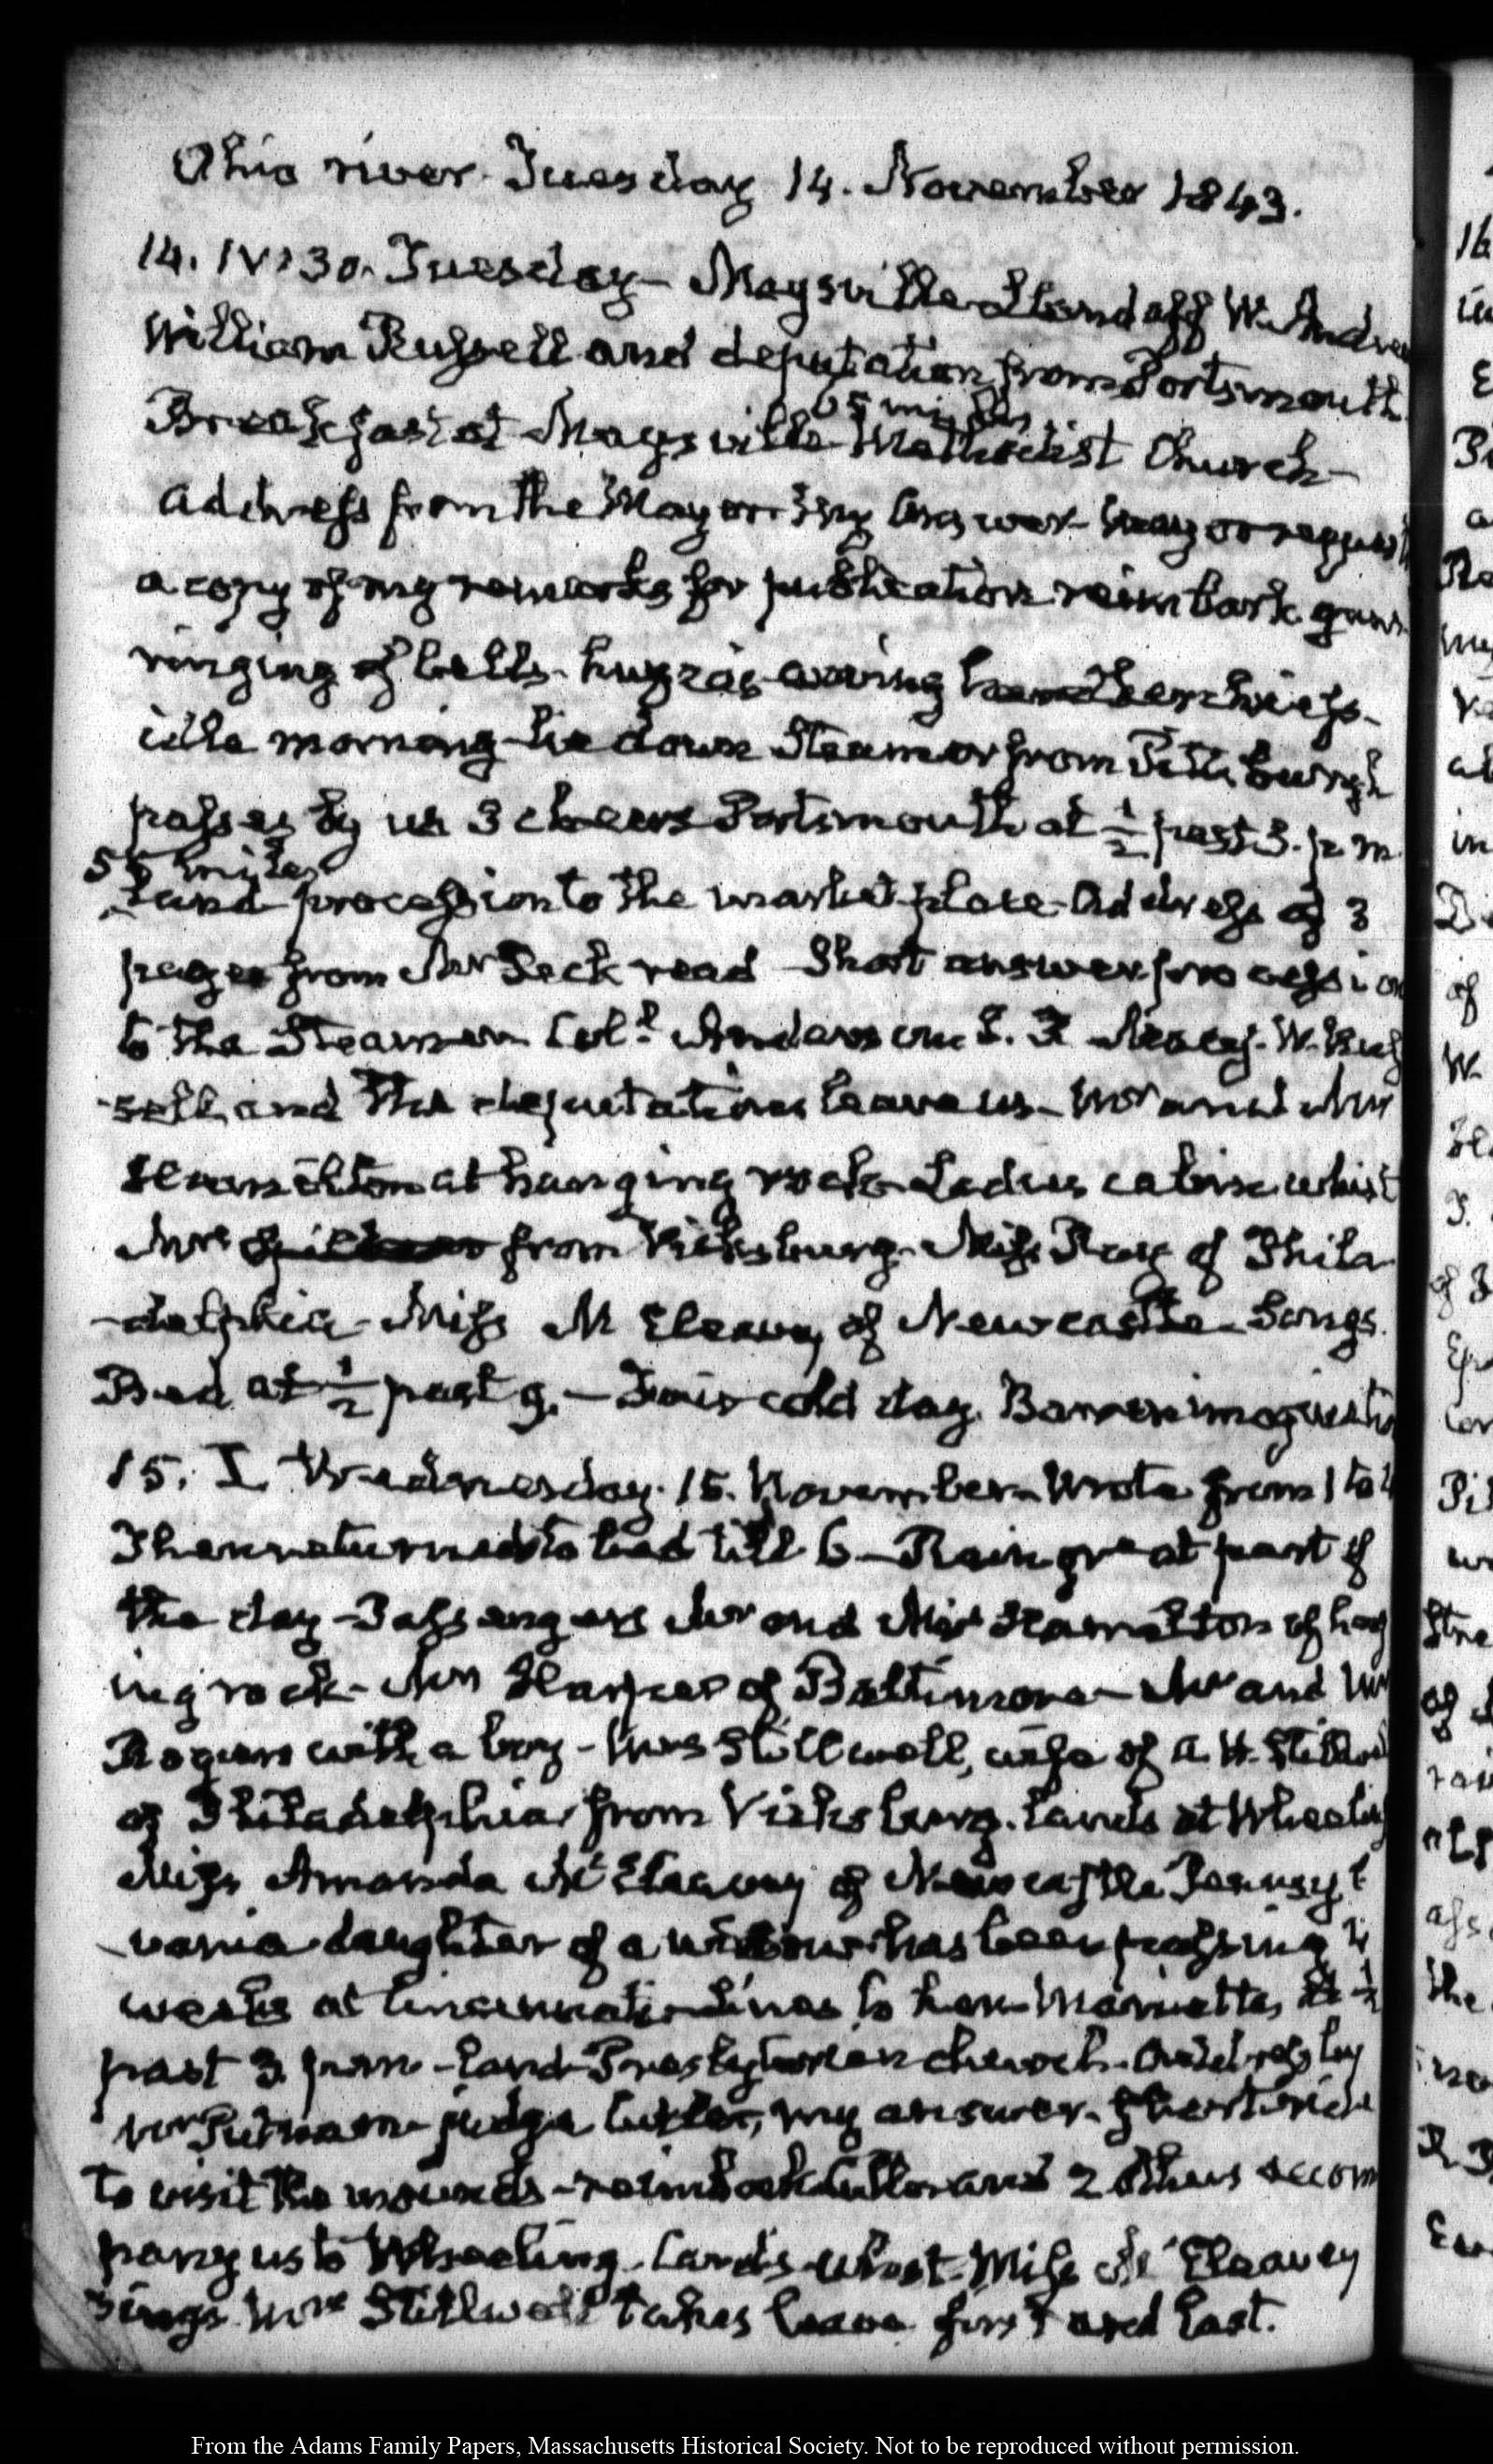 Ohio river Tuesday 14. November 1843.
14. IV:30. Tuesday- Maysville- Land off W. Andrew
William Russell and deputation from Portsmouth
65 miles
Breakfast at Maysville- Methodist Church-
Address from the Mayor- My answer- Mayor request
a copy of my remarks for publication- reimbark guns
ringing of bells- huzzas waving handkerchiefs-
idle morning- lie down Steamer from Pittsburgh
passes by us 3 cheers Portsmouth at ½ past 3. p m.
55 miles
Land procession to the market place- Address of 3
pages from Mr Peck read Short answer procession
to the Steamer Coll. Anderson W. Rus
-sell and the deputations leave us- Mr and Mrs
Hamilton at hanging rock- Ladies cabin whist
Mrs from Vicksburg- Miss Ray of Phila
-delphia- Miss M Eleavey of Newcastle- Songs.
Bed at ½ past 9.- Fair cold day. Barren imaginatio
15. I. Wednesday. 15. November- Wrote from 1 to 4
Then returned to bed till 6- Rain great part of
the day- Passengers Mr and Mrs Hamilton of hang
ing rock- Mrs Harper of Baltimore- Mr and Mrs
Rogers with a boy- Mrs Stillwell, wife of A. H. Stillwel
of Philadelphia from Vicksburg. lands at Wheeling
Miss Amanda Mc Eleavey of Newcastle Pennsyl
-vania daughter of a widow- has been passing
weeks at Cincinnati- Marietta, at ½
past 3 p.m- Land- Presbyterian church- Address by
Mr Putnam- judge Cutler, my answer- Short ride
to visit the mounds- reimbark Cutler and 2 others accom
pany us to Wheeling- Cards- whist- Miss Mc Eleavey
sings Mrs Stillwell takes leave first and last.
From the Adams Family Papers, Massachusetts Historical Society. Not to be reproduced without permission.